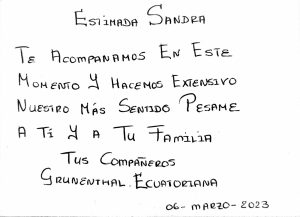 Estimada Sandra
Te Acompanamos En Este
Momento Y Hacemos Extensivo
Nuestro Más Sentido Pesame
A Ti Y A Tu Familia
Tus Compañeros
Grunenthal Ecuatoriana
06-Marzo-2023